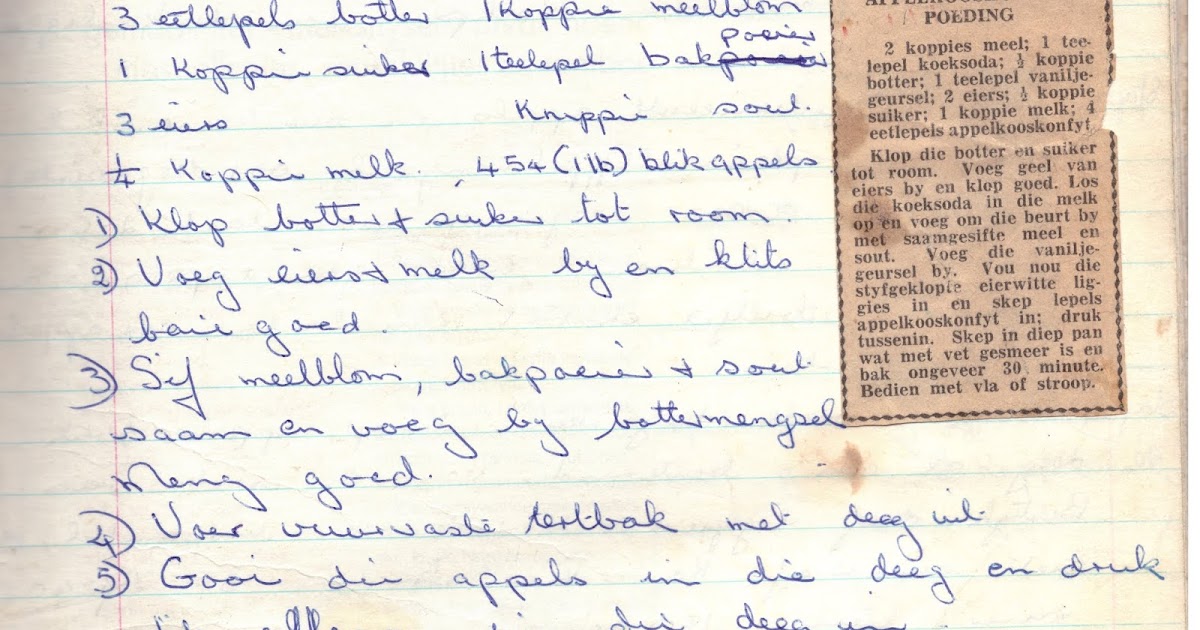 3 eetlepels botter 1 Koppie meelblom
1 Koppie suiker 1 teelepel bakpoeier
3 eiers Knippie sout.
1/4 Koppie melk. 454 (1 lb) blik appels
1) Klop botter + suiker tot room.
2) Voeg eiers + melk by en klits
baie goed.
3) Sif meelblom, bakpoeier + sout
saam en voeg by bottermengsel
Meng goed.
4) Voer vuurvaste tertbak met deeg uit.
5) Gooi die appels in die deeg en druk
die deeg
POEDING
2 koppies meel; 1 tee-
lepel koeksoda; ½ koppie
botter; 1 teelepel vanilje-
geursel; 2 eiers; ½ koppie
suiker; 1 koppie melk; 4
eetlepels appelkooskonfyt
Klop die botter en suiker
tot room. Voeg geel van
eiers by en klop goed. Los
die koeksoda in die melk
op en voeg om die beurt by
met saamgesifte meel en
sout. Voeg die vanilje-
geursel by. Vou nou die
styfgeklopte eierwitte lig-
gies in en skep lepels
appelkooskonfyt in; druk
tussenin. Skep in diep pan
wat met vet gesmeer is en
bak ongeveer 30 minute.
Bedien met vla of stroop.